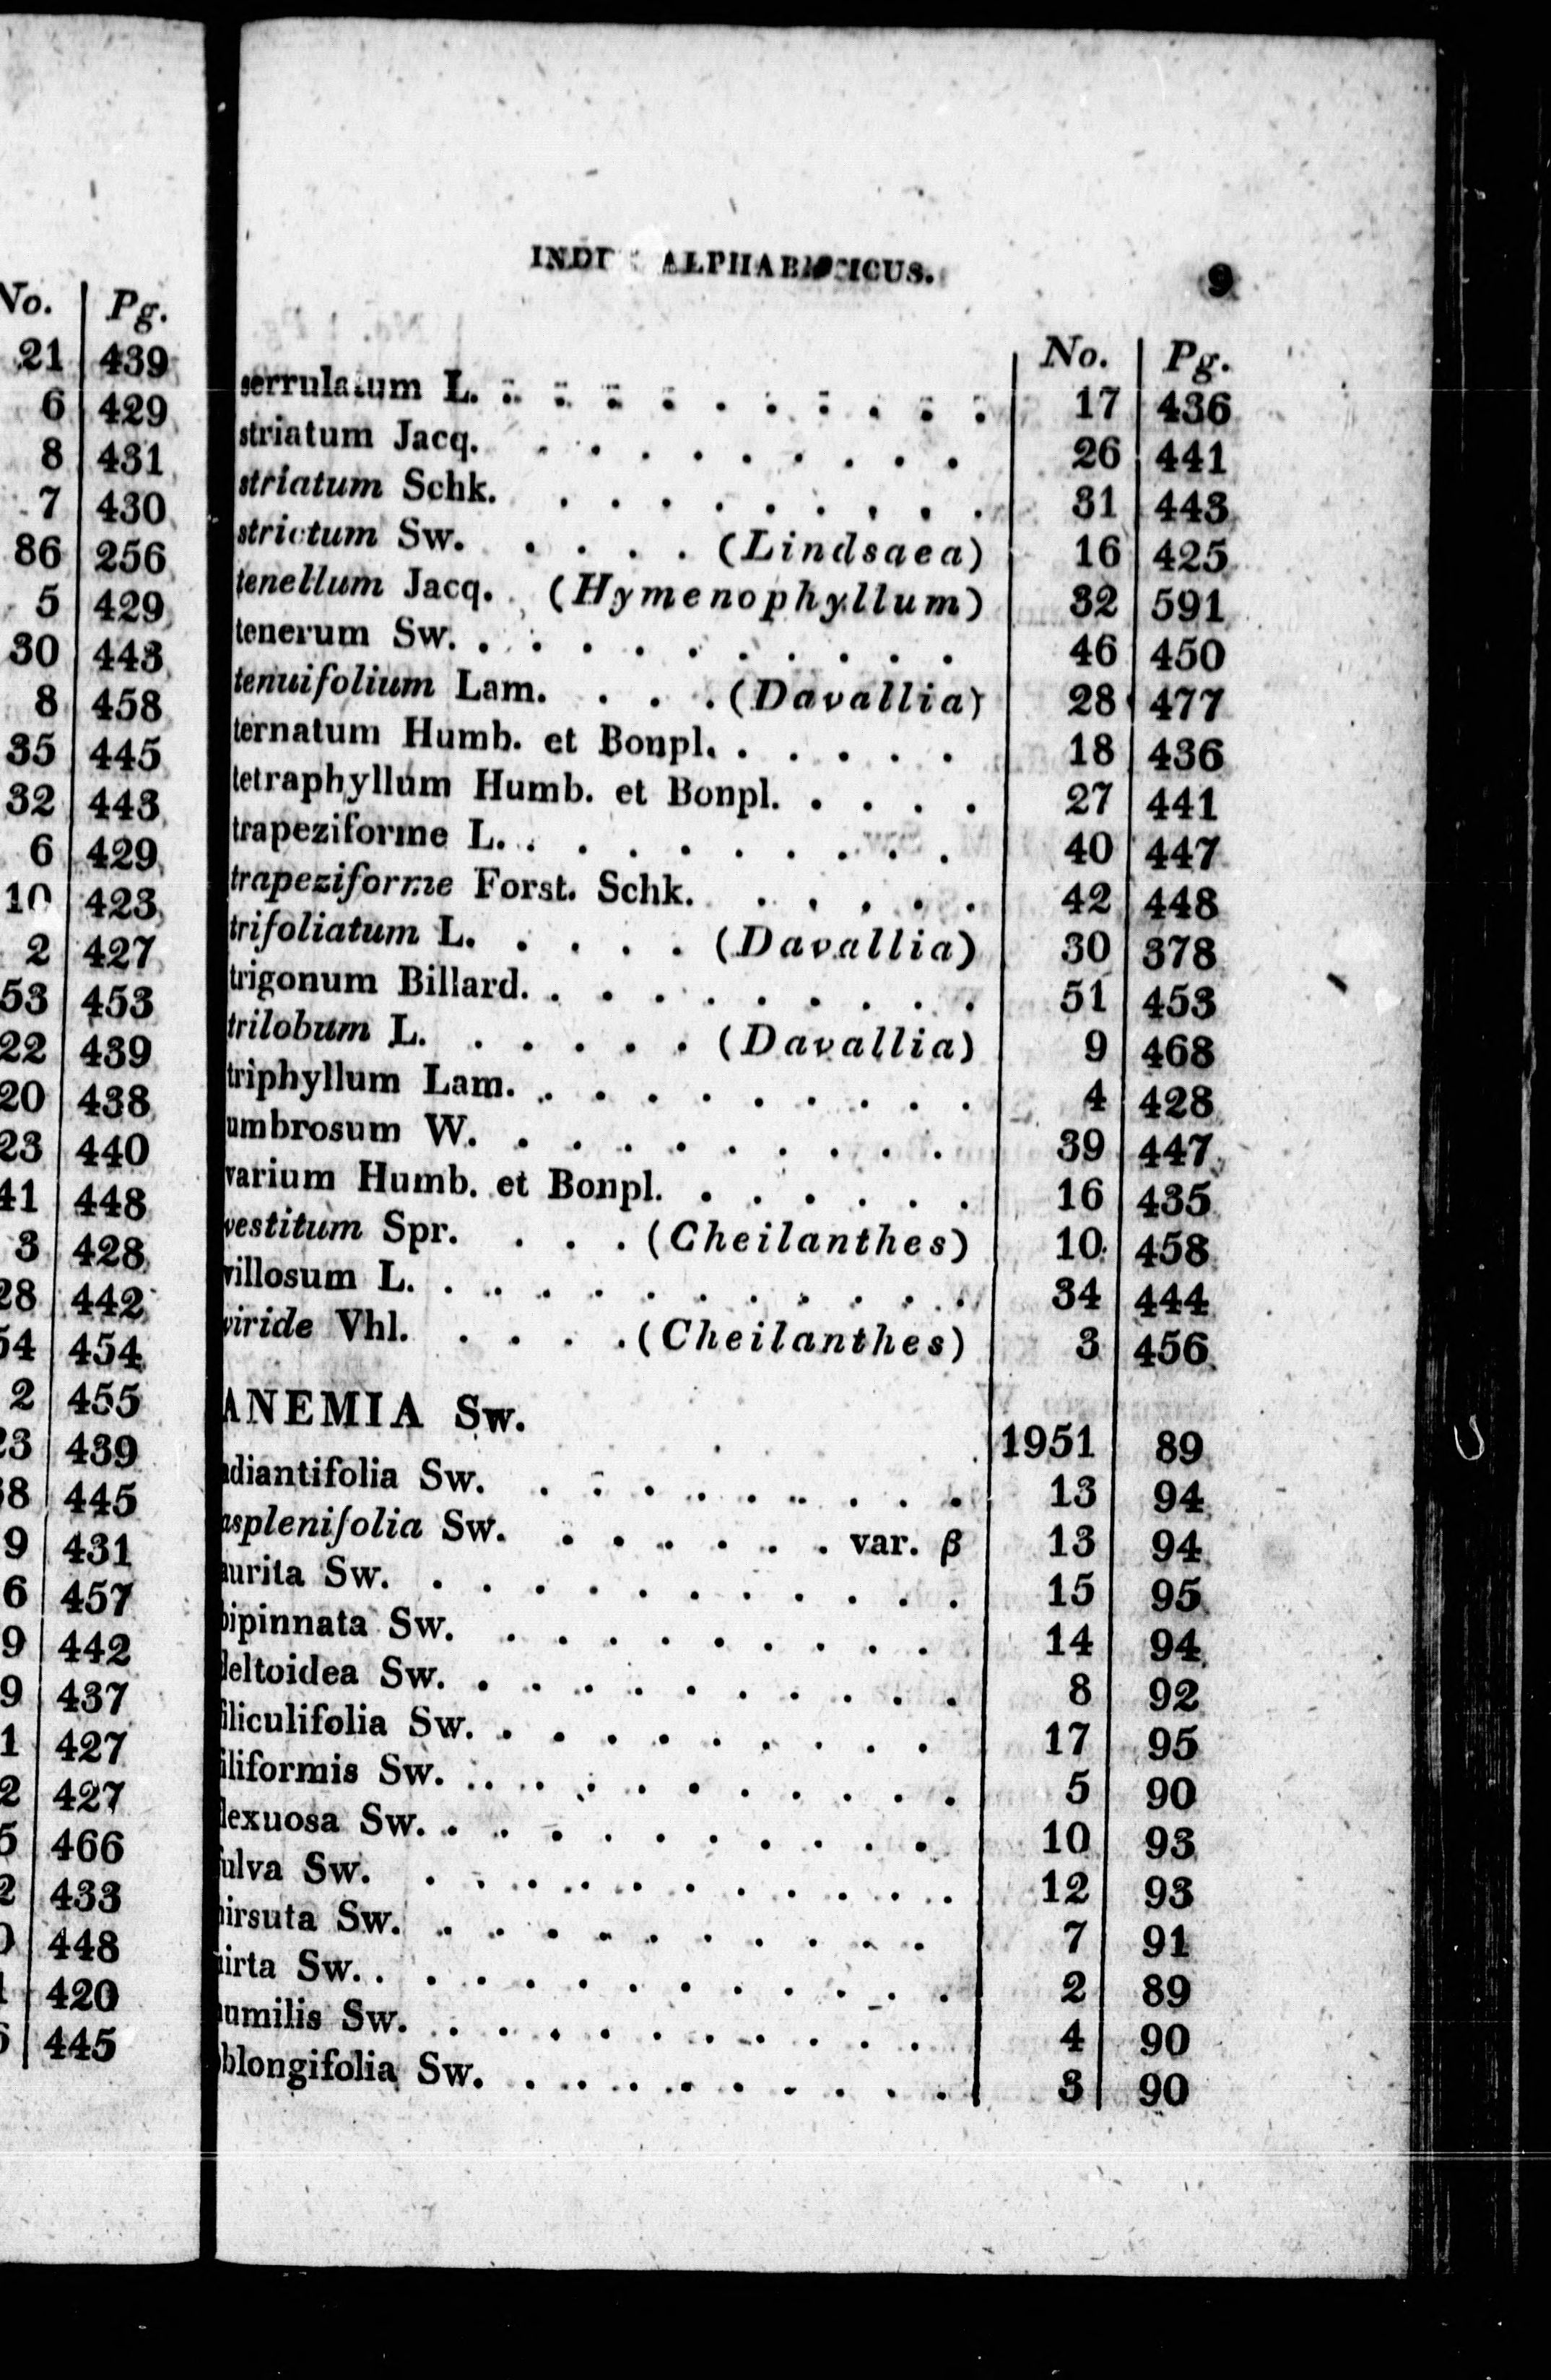 No. Pg.
21 439
6 429
8 431
7 430
86 256
5 429
30 443
8 458
35 445
32 443
6 429
10 423
2 427
53 453
22 439
20 438
23 440
41 448
3 428
28 442
54 454
2 455
23 439
8 445
9 431
6 457
9 442
9 437
1 427
2 427
5 466
2 433
448
420
445
ALPHABETICUS. 9
No. Pg.
serrulatum L. . . . . . . . . . . 17 436
striatum Jacq. . . . . . . . . . 26 441
striatum Schk. . . . . . . . . . 31 443
strictum Sw. . . . . (Lindsaea) 16 425
tenellum Jacq. (Hymenophyllum) 32 591
tenerum Sw. . . . . . . . . . . 46 450
tenuifolium Lam. . . . (Davallia) 28 477
ternatum Humb. et Bonpl. . . . . . 18 436
tetraphyllum Humb. et Bonpl. . . . . 27 441
trapeziforme L. . . . . . . . . . 40 447
trapeziforme Forst. Schk. . . . . . 42 448
trifoliatum L. . . . . (Davallia) 30 378
trigonum Billard. . . . . . . . . . 51 453
trilobum L. . . . . . (Davallia) 9 468
triphyllum Lam. . . . . . . . . . 4 428
umbrosum W. . . . . . . . . . 39 447
varium Humb. et Bonpl. . . . . . . 16 435
vestitum Spr. . . . (Cheilanthes) 10 458
villosum L. . . . . . . . . . . . 34 444
viride Vhl. . . . . (Cheilanthes) 3 456
ANEMIA Sw. 1951 89
adiantifolia Sw. . . . . . . . . . 13 94
asplenifolia Sw. . . . . . . var. β 13 94
aurita Sw. . . . . . . . . . . . 15 95
bipinnata Sw. . . . . . . . . . 14 94
deltoidea Sw. . . . . . . . . . . 8 92
filiculifolia Sw. . . . . . . . . . 17 95
filiformis Sw. . . . . . . . . . . 5 90
flexuosa Sw. . . . . . . . . . . 10 93
fulva Sw. . . . . . . . . . . . 12 93
hirsuta Sw. . . . . . . . . . . 7 91
hirta Sw. . . . . . . . . . . . . 2 89
humilis Sw. . . . . . . . . . . 4 90
oblongifolia Sw. . . . . . . . . . 3 90